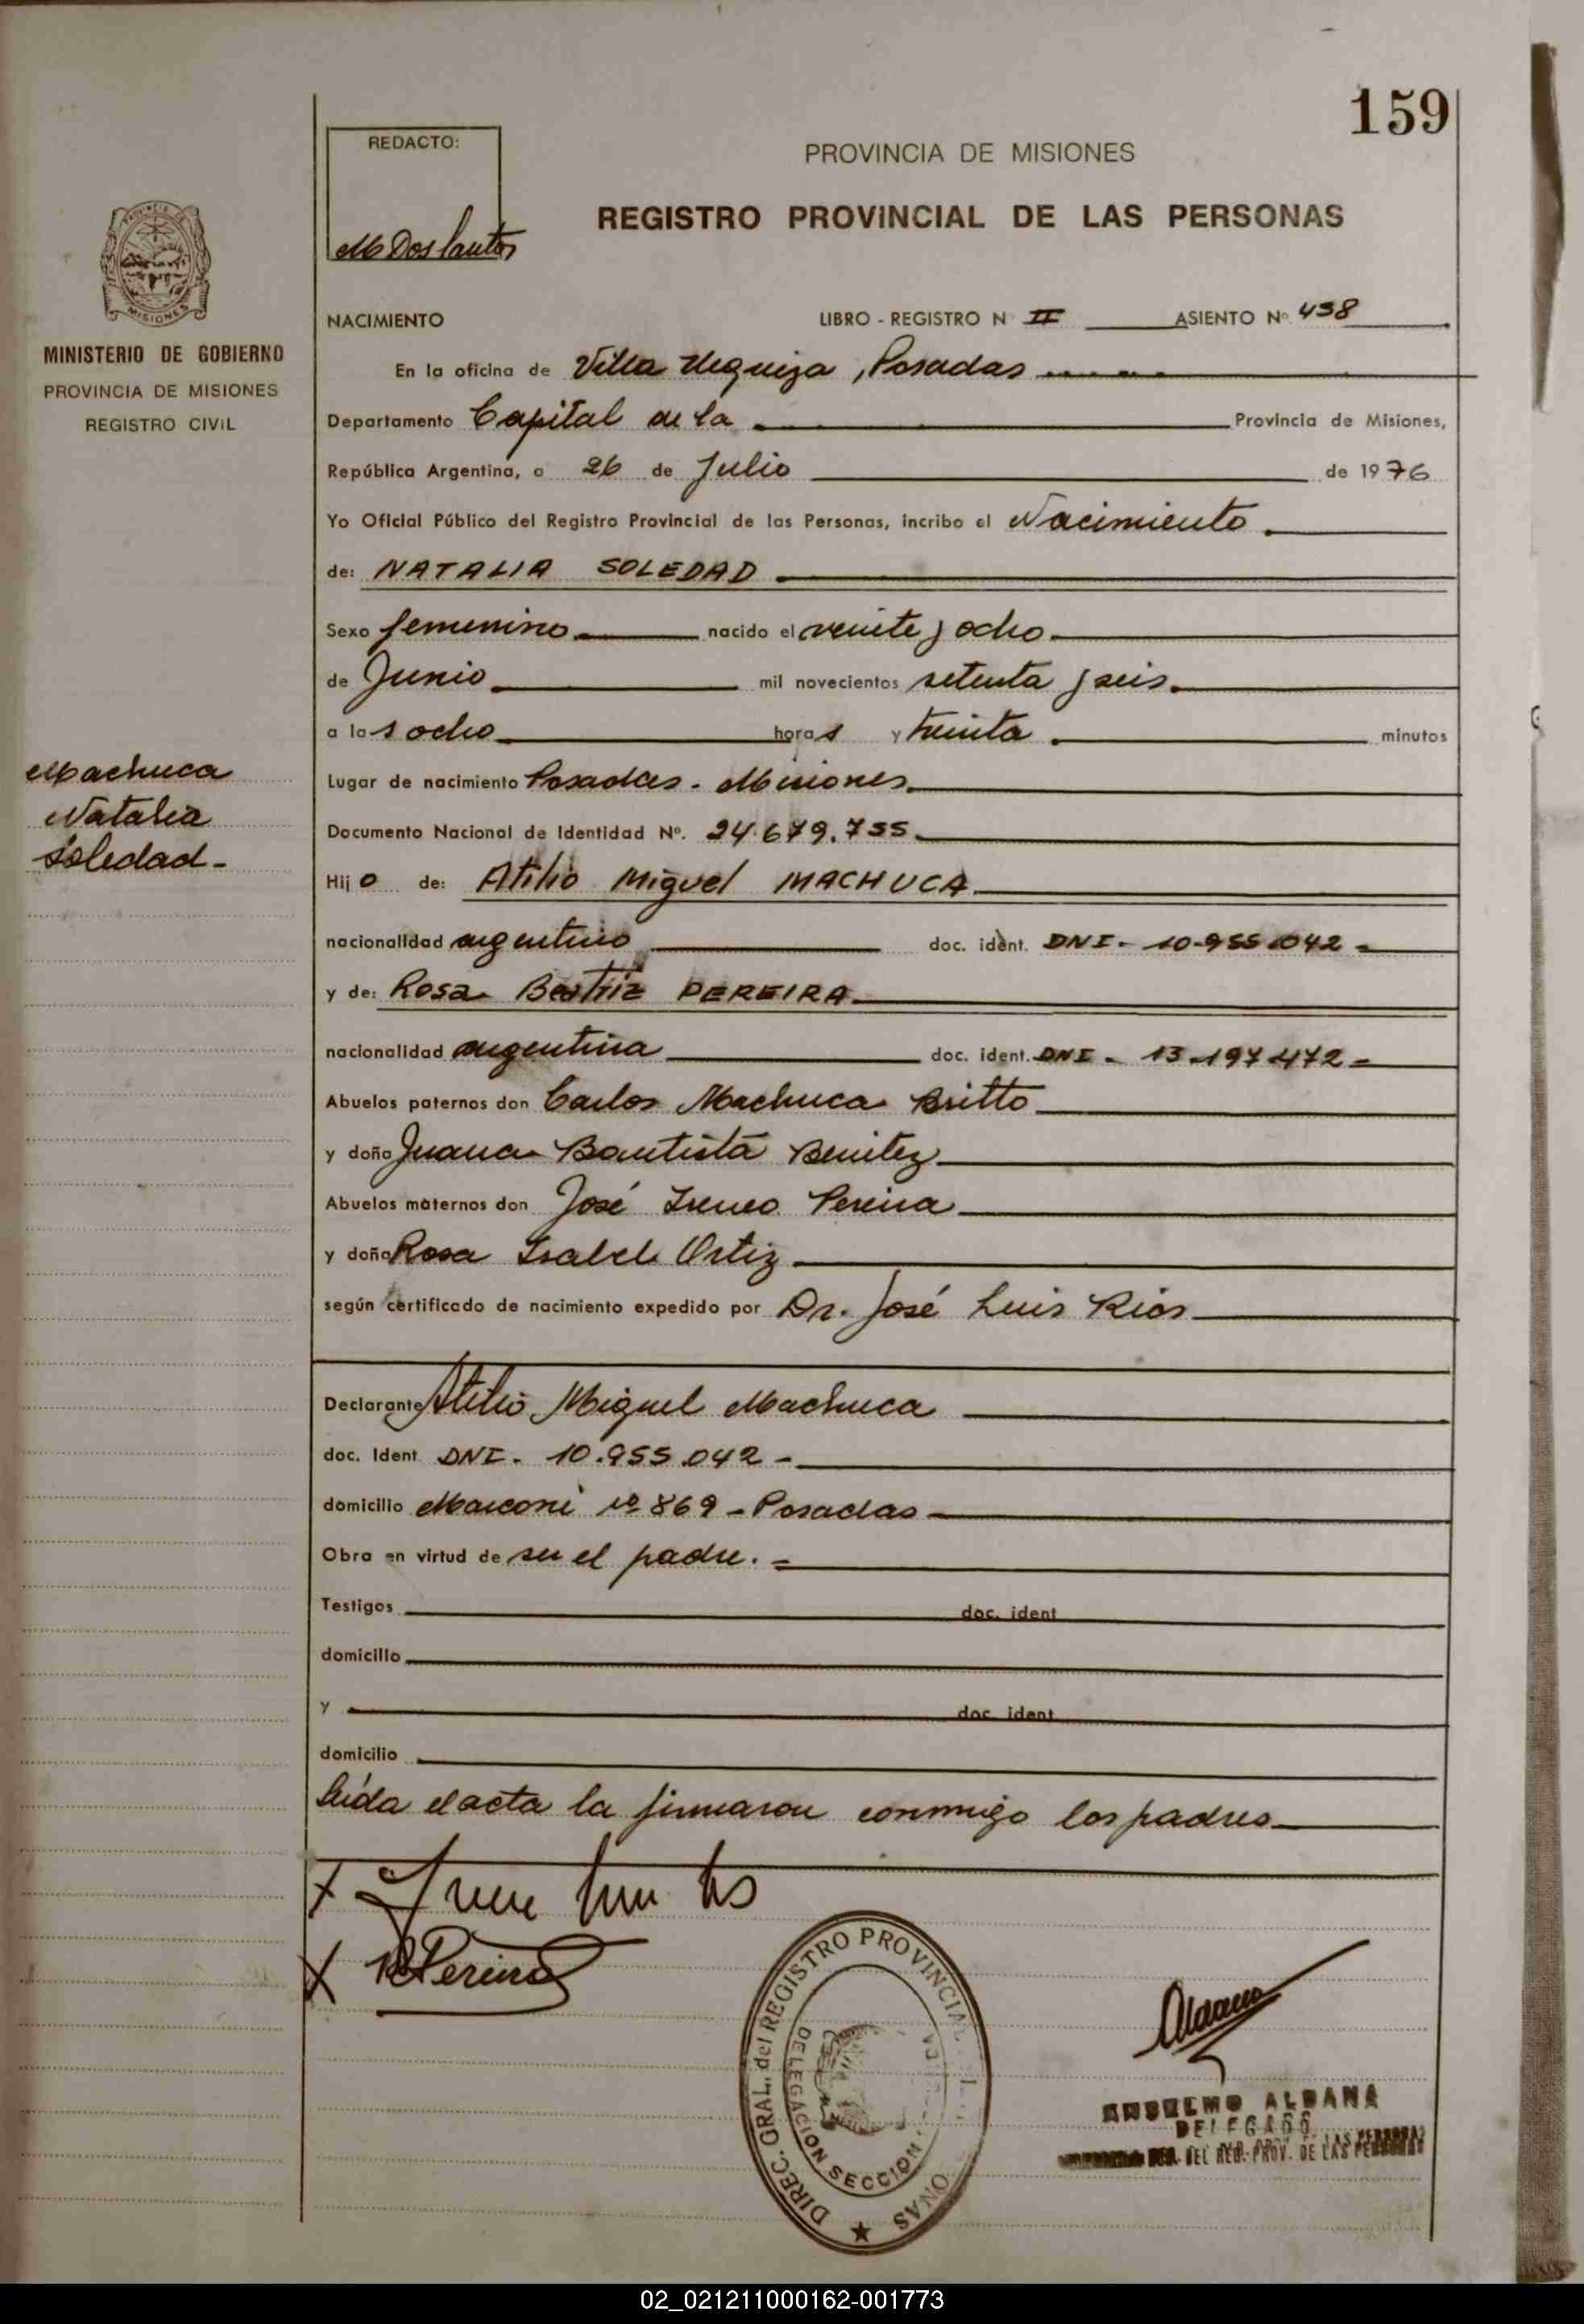 159
REDACTO:
M Dos Santos
PROVINCIA DE MISIONES
REGISTRO PROVINCIAL DE LAS PERSONAS
PROVINCIA DE
MISIONES
MINISTERIO DE GOBIERNO
PROVINCIA DE MISIONES
REGISTRO CIVIL
NACIMIENTO LIBRO - REGISTRO N II ASIENTO Nº 438
En la oficina de Villa Urquiza, Posadas
Departamento Capital de la Provincia de Misiones,
República Argentina, a 26 de Julio de 1976
Yo Oficial Público del Registro Provincial de las Personas, incribo el Nacimiento
de: NATALIA SOLEDAD
Sexo femenino nacido el veinte y ocho
de Junio mil novecientos setenta y seis
a las ocho horas y treinta minutos
Lugar de nacimiento Posadas - Misiones
Documento Nacional de Identidad Nº. 24.679.755
Machuca
Natalia
Soledad -
Hijo de: Atilio Miguel MACHUCA
nacionalidad argentino doc. ident. DNI - 10.955.042 -
y de: Rosa Beatriz PEREIRA
nacionalidad argentina doc. ident. DNI - 13.197.472 -
Abuelos paternos don Carlos Machuca Britto
y doña Juana Bautista Benitez
Abuelos maternos don José Ireneo Pereira
y doña Rosa Isabel Ortiz
según certificado de nacimiento expedido por Dr. José Luis Rios
Declarante Atilio Miguel Machuca
doc. Ident. DNI - 10.955.042 -
domicilio Marconi nº 869 - Posadas -
Obra en virtud de ser el padre. -
Testigos doc. ident
domicilio
y doc. ident
domicilio
Leída el acta la firmaron conmigo los padres
X
X RBPereira
DIREC. GRAL. del REGISTRO PROVINCIAL
DELEGACION SECCION
Aldana
ANSELMO ALDANA
DELEGADO
DEL REG. PROV. DE LAS PERSONAS
02_021211000162-001773